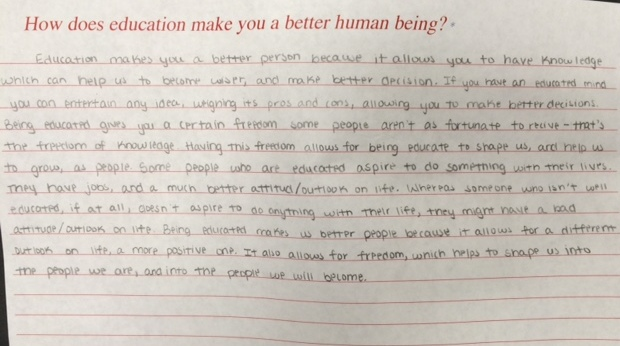 How does education make you a better human being?
Education makes you a better person because it allows you to have knowledge
which can help us to become wiser, and make better decision. If you have an educated mind
you can entertain any idea, weighing its pros and cons, allowing you to make better decisions.
Being educated gives you a certain freedom some people aren't as fortunate to recive - that's
the freedom of knowledge. Having this freedom allows for being educate to shape us, and help us
to grow, as people. Some people who are educated aspire to do something with their lives.
They have jobs, and a much better attitud/outlook on life. Whereas someone who isn't well
educated, if at all, doesn't aspire to do anything with their life, they might have a bad
attitude/outlook on life. Being educated makes us better people because it allows for a different
outlook on life, a more positive one. It also allows for freedom, which helps to shape us into
the people we are, and into the people we will become.